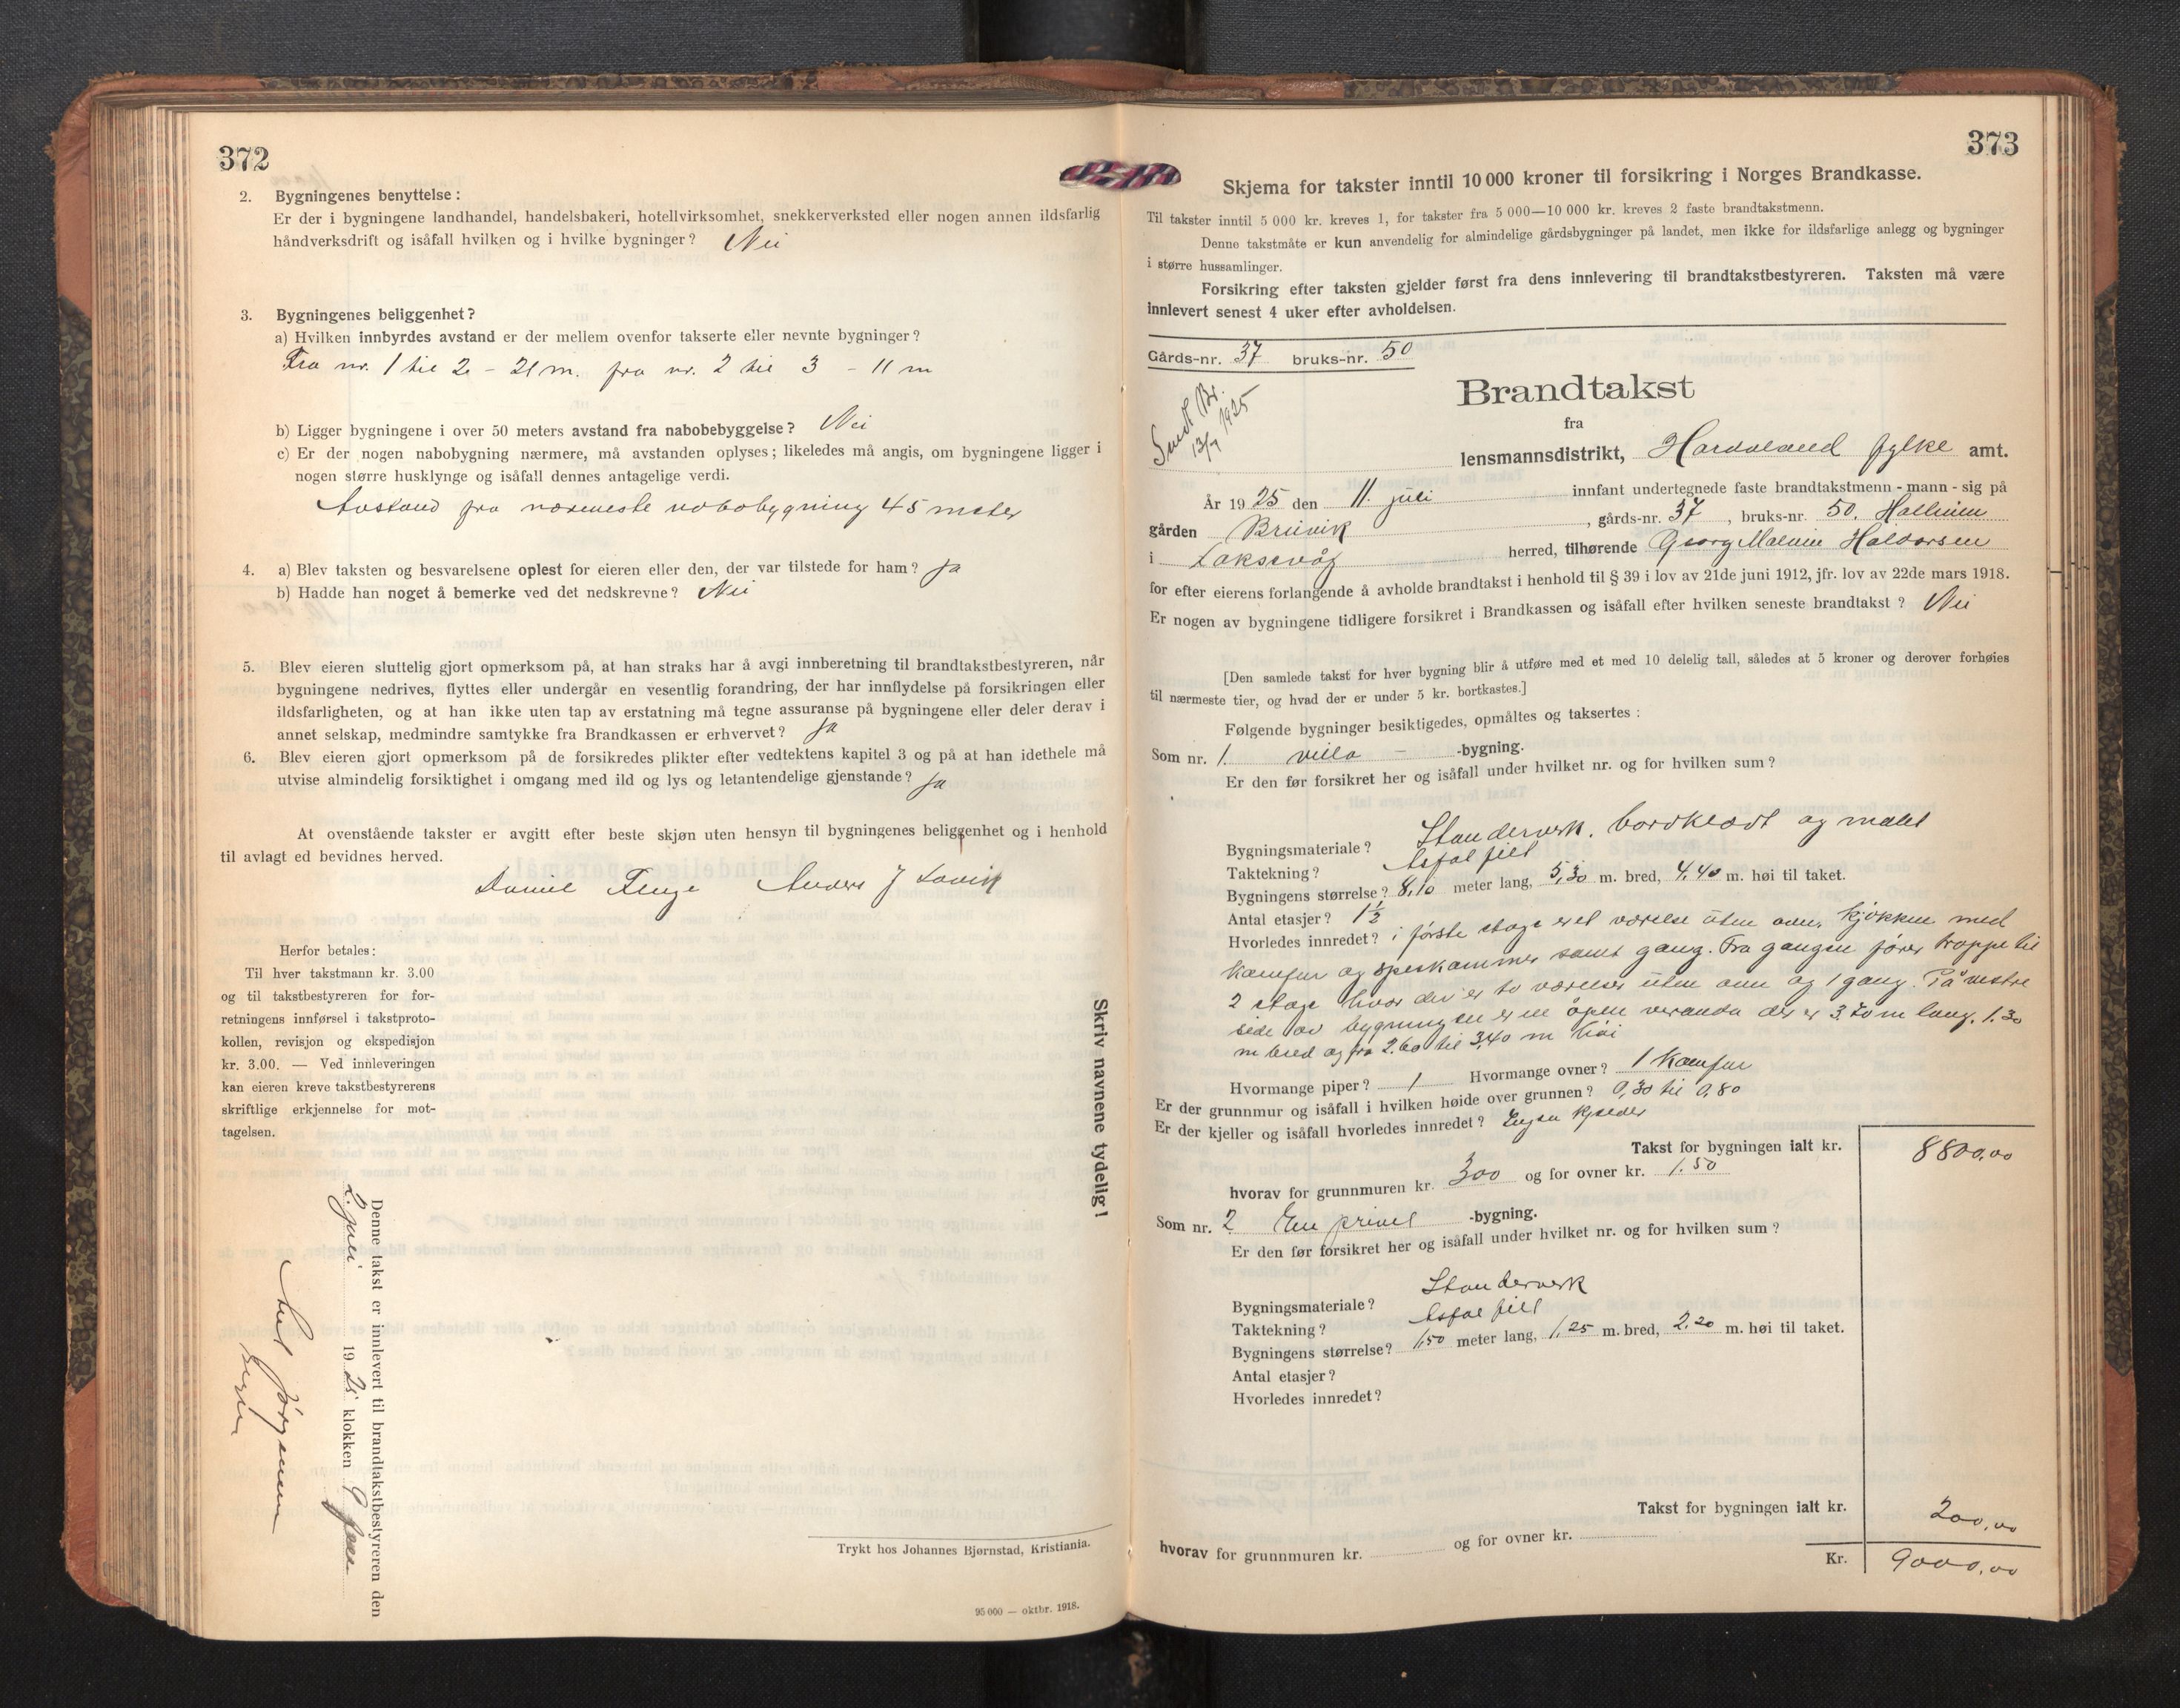 372
2. Bygningenes benyttelse:
Er der i bygningene landhandel, handelsbakeri, hotellvirksomhet, snekkerverksted eller nogen annen ildsfarlig
håndverksdrift og isåfall hvilken og i hvilke bygninger? Nei
3. Bygningenes beliggenhet?
a) Hvilken innbyrdes avstand er der mellem ovenfor takserte eller nevnte bygninger?
Fra nr. 1 til 2 - 21 m. fra nr. 2 til 3 - 11 m
b) Ligger bygningene i over 50 meters avstand fra nabobebyggelse? Nei
c) Er der nogen nabobygning nærmere, må avstanden oplyses; likeledes må angis, om bygningene ligger i
nogen større husklynge og isåfall dennes antagelige verdi.
Avstand fra nærmeste nabobygning 45 meter
4. a) Blev taksten og besvarelsene oplest for eieren eller den, der var tilstede for ham? ja
b) Hadde han noget å bemerke ved det nedskrevne? Nei
5. Blev eieren sluttelig gjort opmerksom på, at han straks har å avgi innberetning til brandtakstbestyreren, når
bygningene nedrives, flyttes eller undergår en vesentlig forandring, der har innflydelse på forsikringen eller
ildsfarligheten, og at han ikke uten tap av erstatning må tegne assuranse på bygningene eller deler derav i
annet selskap, medmindre samtykke fra Brandkassen er erhvervet? ja
6. Blev eieren gjort opmerksom på de forsikredes plikter efter vedtektens kapitel 3 og på at han idethele må
utvise almindelig forsiktighet i omgang med ild og lys og letantendelige gjenstande? ja
At ovenstående takster er avgitt efter beste skjøn uten hensyn til bygningenes beliggenhet og i henhold
til avlagt ed bevidnes herved.
Anders J Lavik
Herfor betales:
Til hver takstmann kr. 3.00
og til takstbestyreren for for-
retningens innførsel i takstproto-
kollen, revisjon og ekspedisjon
kr. 3.00. — Ved innleveringen
kan eieren kreve takstbestyrerens
skriftlige erkjennelse for mot-
tagelsen.
Skriv navnene tydelig!
Denne takst er innlevert til brandtakstbestyreren den
2 juli 1925 klokken 9
Jørgensen
Trykt hos Johannes Bjørnstad, Kristiania.
95 000 — oktbr. 1918.
373
Skjema for takster inntil 10 000 kroner til forsikring i Norges Brandkasse.
Til takster inntil 5 000 kr. kreves 1, for takster fra 5 000—10 000 kr. kreves 2 faste brandtakstmenn.
Denne takstmåte er kun anvendelig for almindelige gårdsbygninger på landet, men ikke for ildsfarlige anlegg og bygninger
i større hussamlinger.
Forsikring efter taksten gjelder først fra dens innlevering til brandtakstbestyreren. Taksten må være
innlevert senest 4 uker efter avholdelsen.
Gårds-nr. 37 bruks-nr. 50
Sendt Br.
13/7 1925
Brandtakst
fra
lensmannsdistrikt, Hordaland fylke amt.
År 1925 den 11. juli innfant undertegnede faste brandtakstmenn - mann - sig på
gården Bruvik, gårds-nr. 37, bruks-nr. 50.
i Laksevåg herred, tilhørende Georg Haldorsen
for efter eierens forlangende å avholde brandtakst i henhold til § 39 i lov av 21de juni 1912, jfr. lov av 22de mars 1918.
Er nogen av bygningene tidligere forsikret i Brandkassen og isåfall efter hvilken seneste brandtakst? Nei
[Den samlede takst for hver bygning blir å utføre med et med 10 delelig tall, således at 5 kroner og derover forhøies
til nærmeste tier, og hvad der er under 5 kr. bortkastes.]
Følgende bygninger besiktigedes, opmåltes og taksertes:
Som nr. 1. villa -bygning.
Er den før forsikret her og isåfall under hvilket nr. og for hvilken sum?
Bygningsmateriale? Standerverk, bordklædt og malet
Taktekning? Asfalfilt
Bygningens størrelse? 8,10 meter lang, 5,30 m. bred, 4,40 m. høi til taket.
Antal etasjer? 1½
Hvorledes innredet? i første etage er et værelse uten ovn, kjøkken med
kamfur og speskammer samt gang. Fra gangen fører trappe til
2 etage hvor der er to værelser uten ovn og 1 gang. På vestre
side av bygningen er en åpen veranda der er 3,20 m lang, 1.30
m bred og fra 2.60 til 3,40 m høi
Hvormange piper? 1 Hvormange ovner? 1 Kamfur
Er der grunnmur og isåfall i hvilken høide over grunnen? 0,30 til 0,80
Er der kjeller og isåfall hvorledes innredet? Ingen kjelder
Takst for bygningen ialt kr. 8800,00
hvorav for grunnmuren kr. 300 og for ovner kr. 1.50
Som nr. 2 En privet -bygning.
Er den før forsikret her og isåfall under hvilket nr. og for hvilken sum?
Bygningsmateriale? Standerverk
Taktekning? Asfalfilt
Bygningens størrelse? 1,50 meter lang, 1,25 m. bred, 2,20 m. høi til taket.
Antal etasjer?
Hvorledes innredet?
Takst for bygningen ialt kr. 200,00
hvorav for grunnmuren kr. og for ovner kr.
Kr. 9000,00